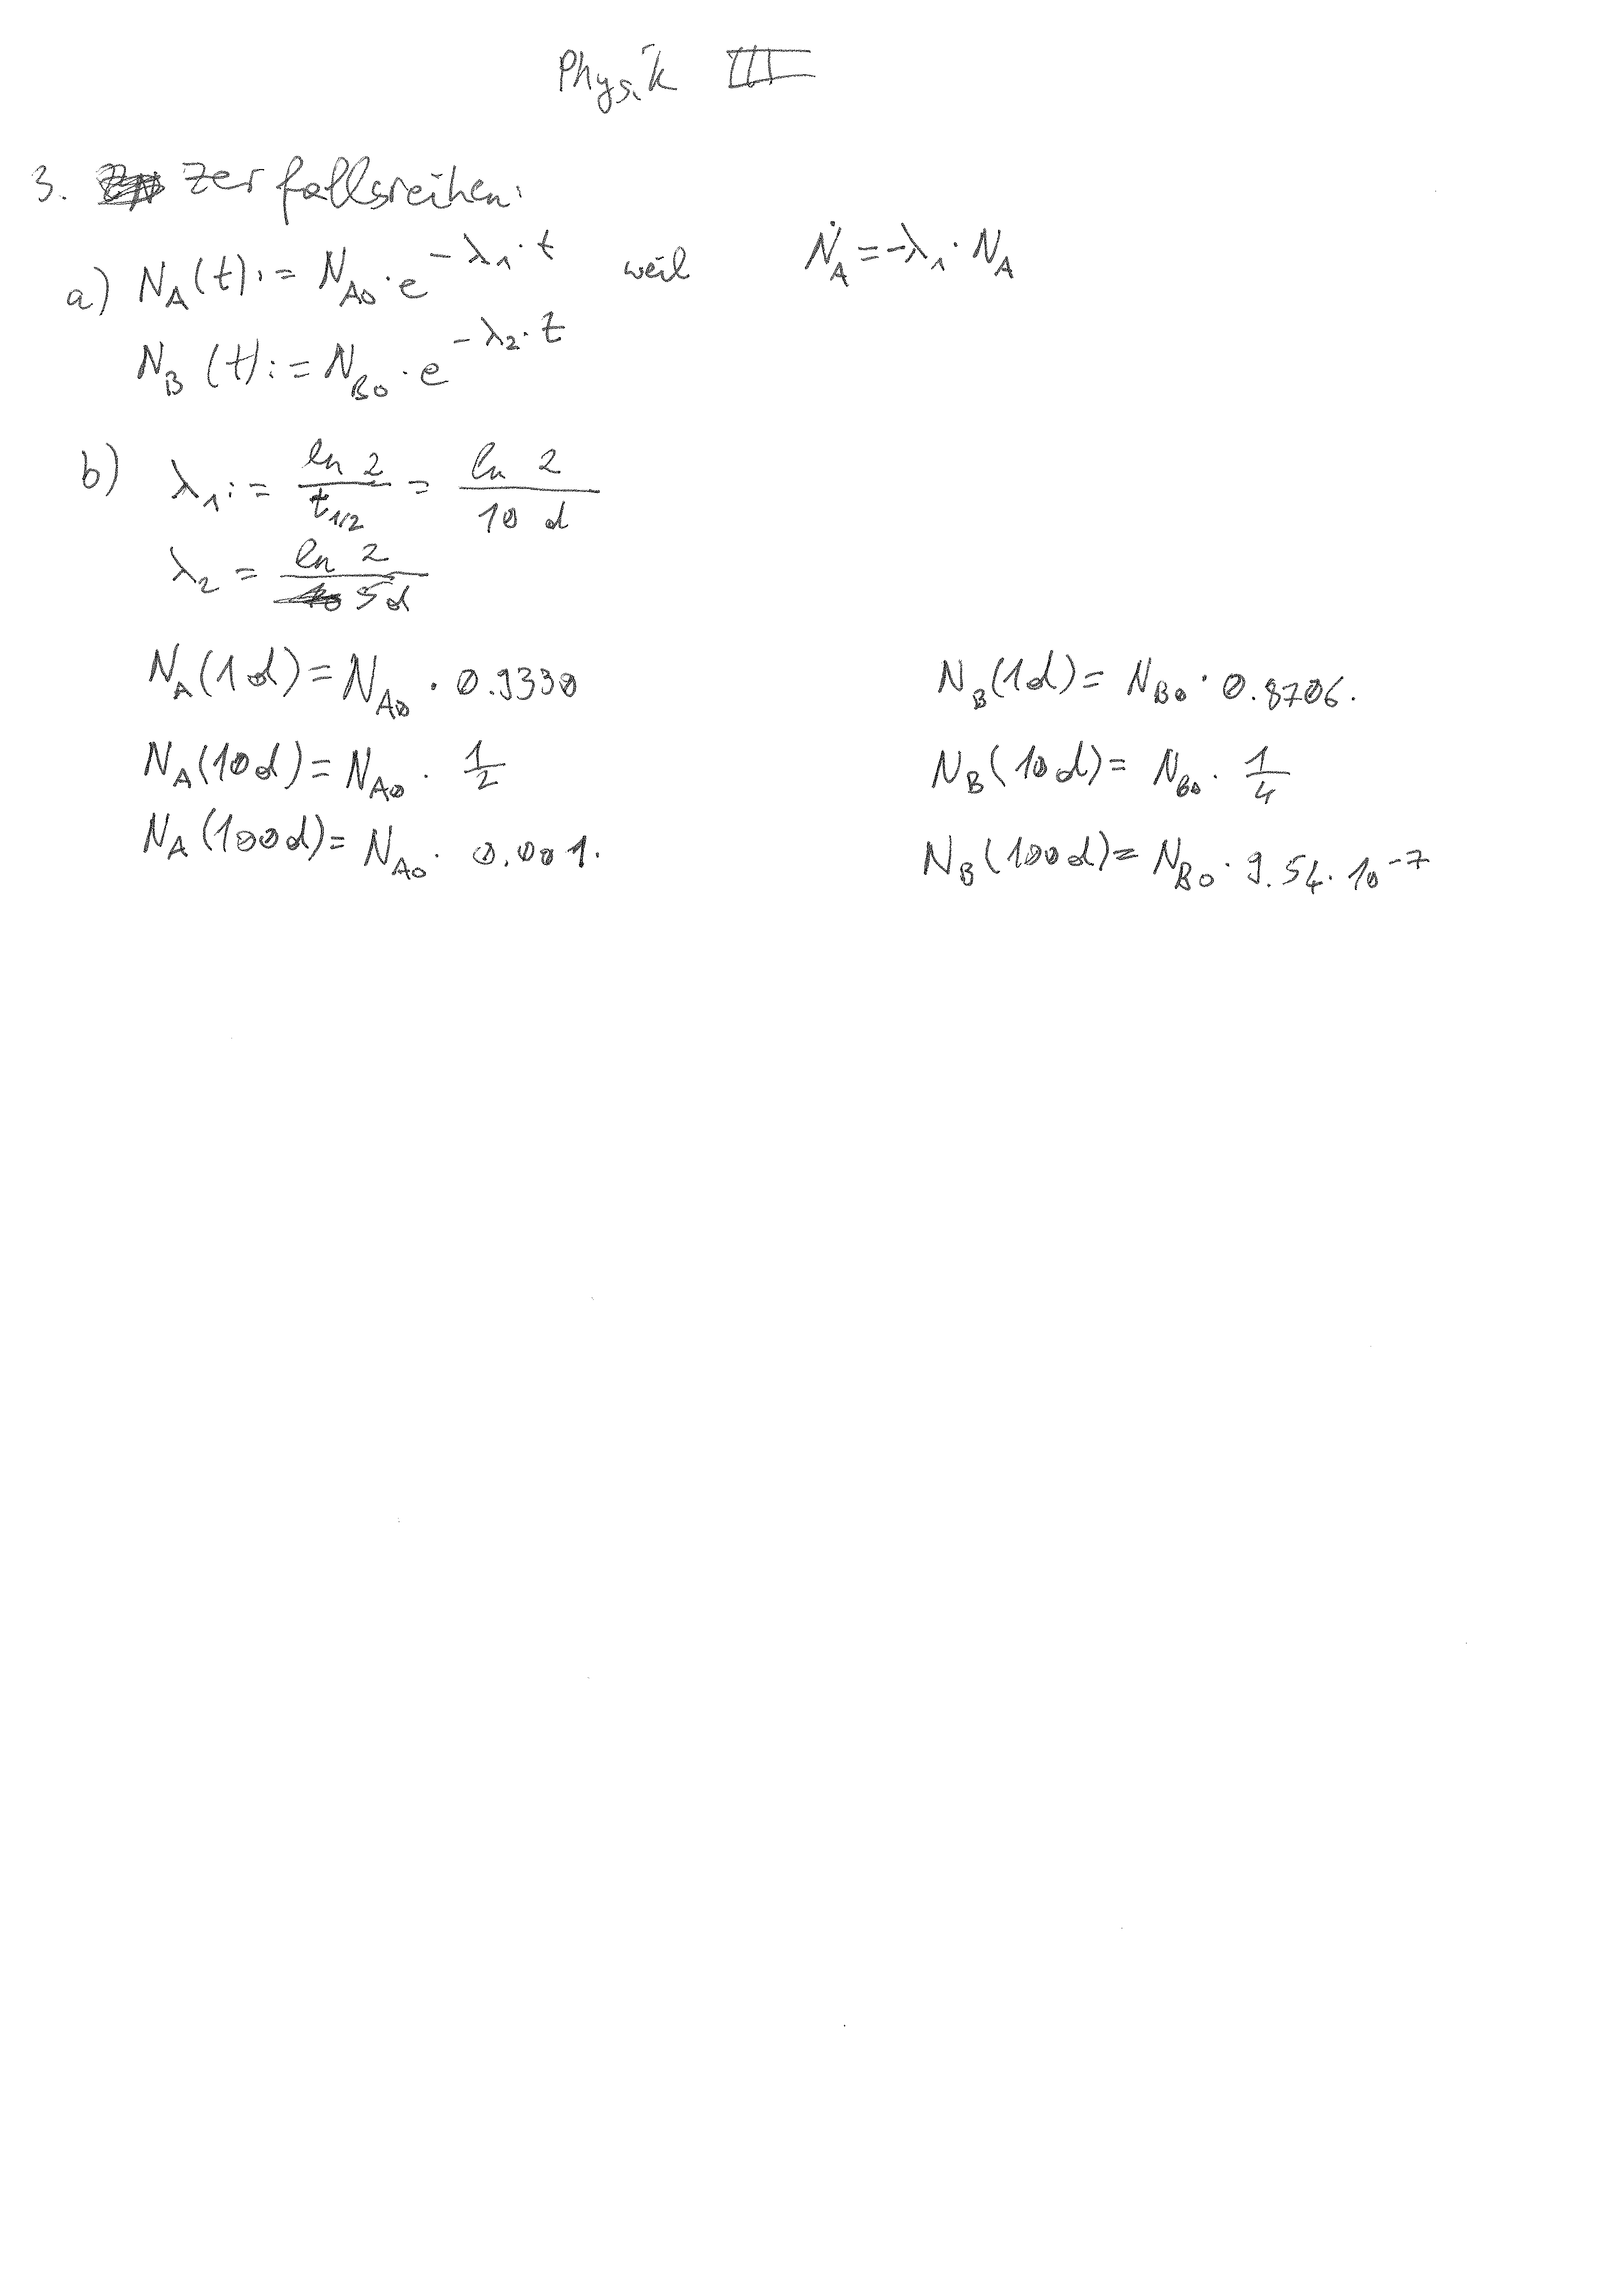 Physik III
3. Zerfallsreihen:
a) N_A(t) := N_A0 · e^(-λ_1 · t) weil Ṅ_A = -λ_1 · N_A
N_B(t) := N_B0 · e^(-λ_2 · t)
b) λ_1 := ln 2 / t_1/2 = ln 2 / 10 d
λ_2 = ln 2 / 5d
N_A(1d) = N_A0 · 0.9330 N_B(1d) = N_B0 · 0.8706.
N_A(10d) = N_A0 · 1/2 N_B(10d) = N_B0 · 1/4
N_A(100d) = N_A0 · 0.001. N_B(100d) = N_B0 · 9.54 · 10^-7